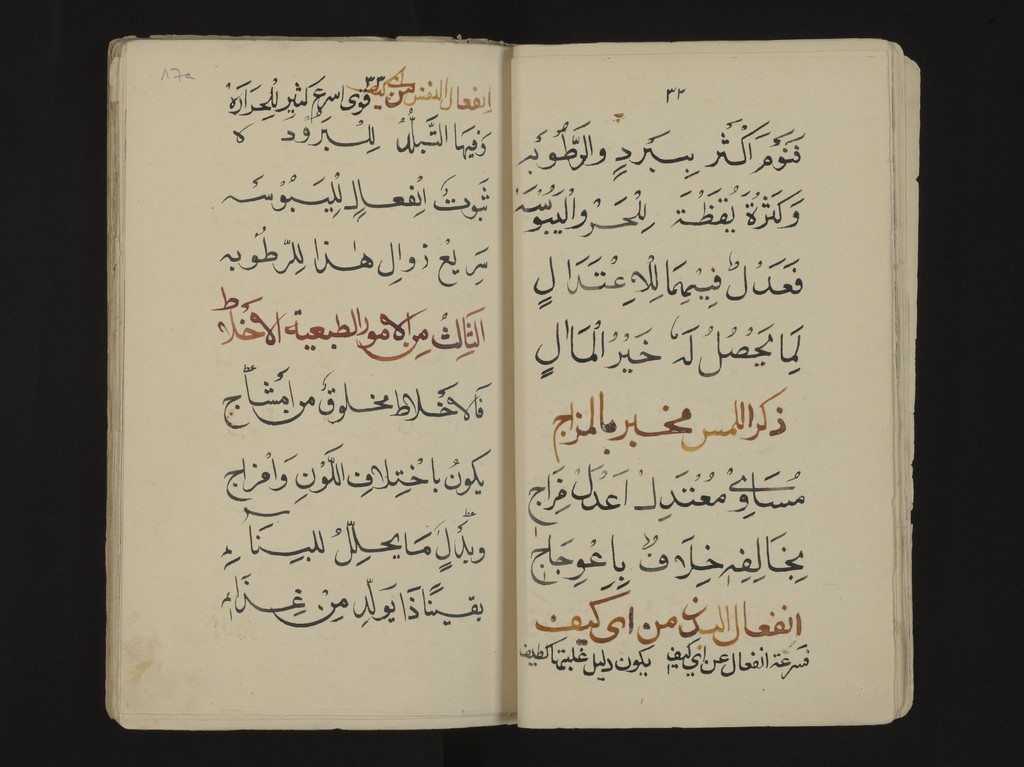 ٣٢
فَنَوْم اَكْثَر بِبَردٍ والرَّطُوْبه
وَكَثرَةُ يَقْظَة لِلْحَرْ والْيَبُوْسَه
فَعَدْلٌ فِيْهِمَا لِلْاِعْتِدَالٍ
لِمَا يَحْصُلُ لَهُ خَيْرُ الْمَالٍ
ذكر اللمس مخبر بالمزاج
مُسَاوِيْ مُعْتَدِلْ اَعْدَلْ مِزَاجٍ
يخَالِفِهِ خِلَافٌ بِاِعْوِجَاجٍ
انفعال البدن من اى كيف
فسرعة انفعال عن اي كيفٍ يكون دليل غلبتها كطيف
٣٣
انفعال النفس من كيف
قوى اسرع كثير للحرارَه
وَفيهَا التَّبلُّدُ لِلْبُرُوْدَه
ثَبوتُ اِنْفعالٍ لِلْيَبُوْسَه
سَرِيْعْ زوال هٰذا لِلرَّطُوبه
الثَالِثْ مِن الامور الطبعية الاخلاط
فَالاخلاط مخلوقٌ من اَمْشَاجٍ
يكونُ باخْتِلافِ اللَّوْنِ وَامْزاج
وبدْلٍ مَا يحلّلُ للبِنَآءِ
يقينًا ذَا يَولّدِ مِنْ غِذَاءِ
17a